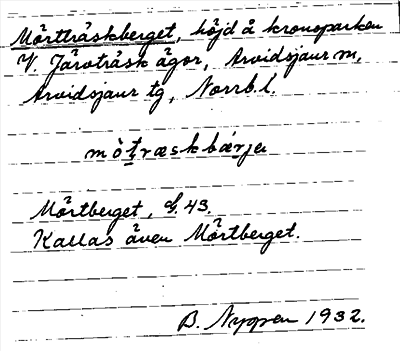 Mörtträskberget, höjd å kronoparken
V. Järvträsk ägor, Arvidsjaur m,
Arvidsjaur tg, Norrb. l.
mö̀t̬ræskbǽrjə
Mörtberget, G. 43.
Kallas även Mörtberget.
B. Nyman 1932.